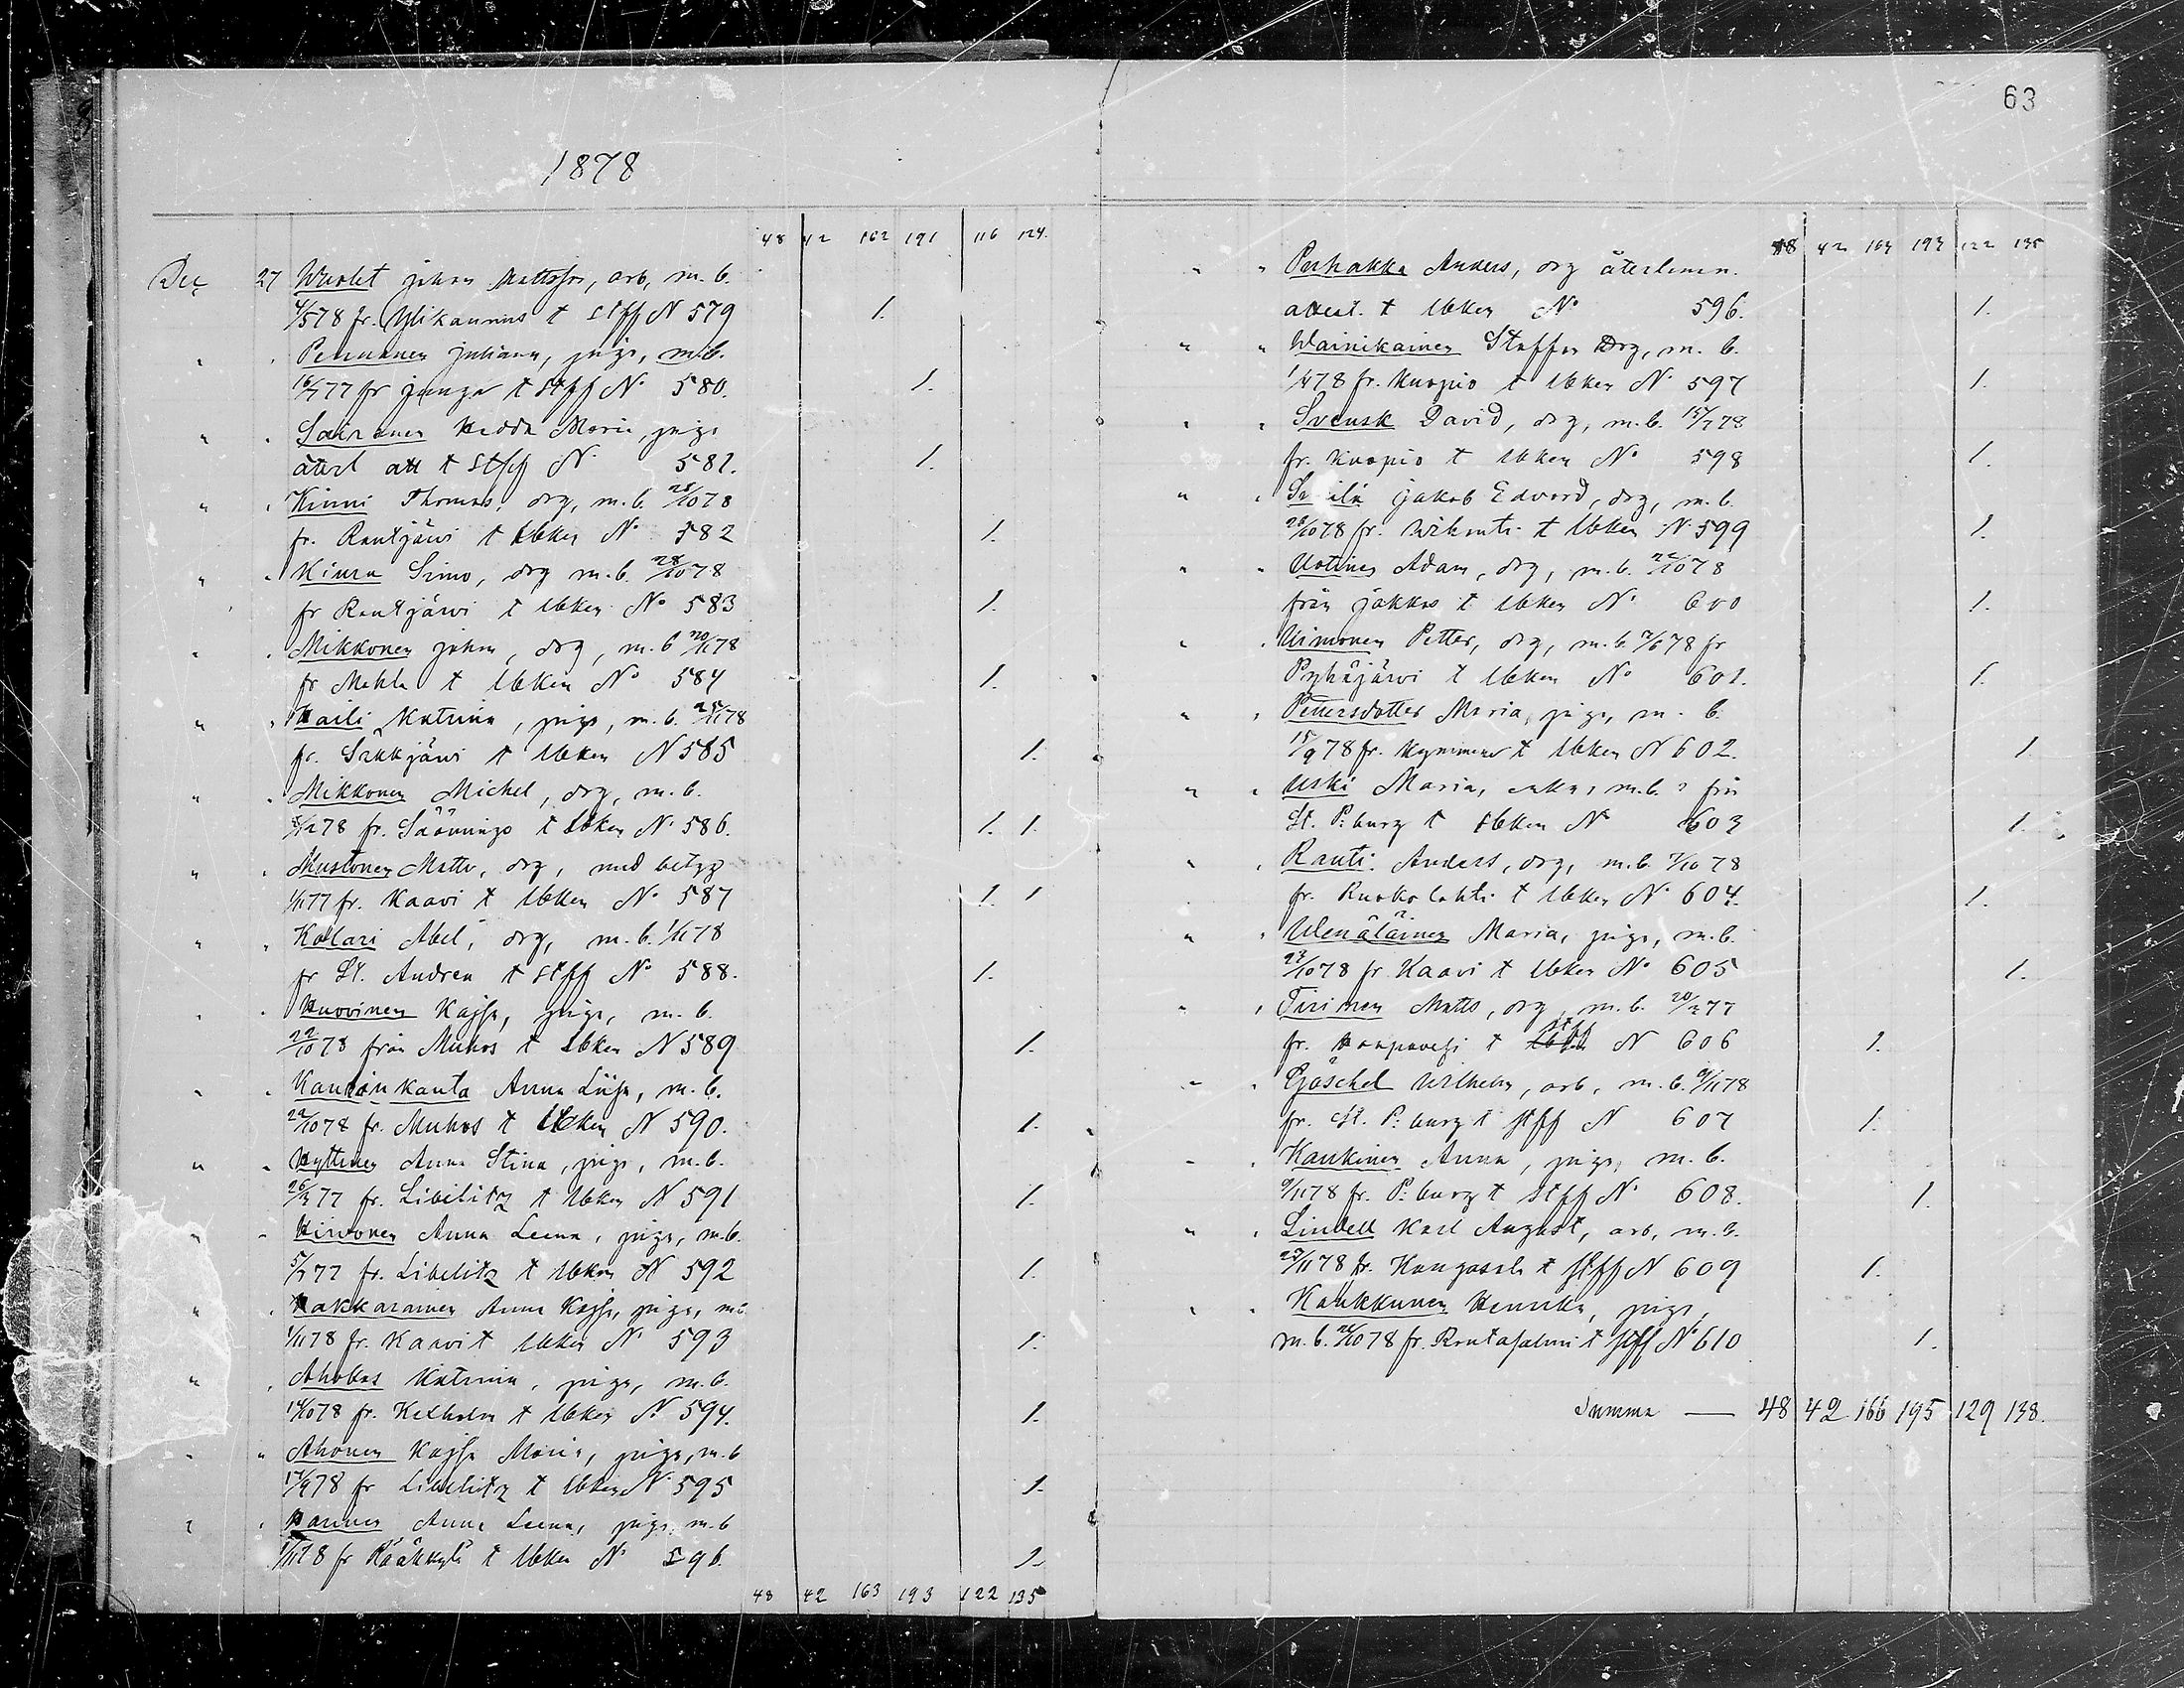 63
1878
48 42 162 191 116 124.
Dec 27 Wuolet Johan Mattsson, arb, m. b.
4/5 78 fr. Ylikannus t stff N 579 1.
" " Pennanen Juliana, piga, m. b.
16/7 77 fr Junga t stff No 580. 1.
" " Sairanen Hedda Maria, piga
återl att t stff No 581. 1.
" " Kinni Thomas, drg, m. b. 28/10 78
fr. Rautjärvi t Ubken No 582 1.
" " Kiuru Simo, drg m. b. 28/10 78
fr Rautjärvi t Ubken No 583 1.
" " Mikkonen Johan, drg, m. b 20/11 78
fr Mohla t Ubken No 584 1.
" " Haili Katrina, piga, m. b. 25/11 78
fr. Säkkjärvi t Ubken N 585 1.
" " Mikkonen Michel, drg, m. b.
8/12 78 fr. Sääminge t Ubken No 586. 1. 1.
" " Mustonen Matts, drg, med betyg
1/11 77 fr. Kaavi t Ubken No 587 1. 1
" " Kalari Abel, drg, m. b. 1/11 78
fr St. Andrea t stff No 588. 1.
" " Huovinen Kajsa, piga, m. b.
22/10 78 från Muhos t Ubken N 589 1.
" " Kauränkanta Anna Liisa, m. b.
22/10 78 fr. Muhos t Ubken N 590. 1.
" " Hyttinen Anna Stina, piga, m. b.
26/3 77 fr. Libelitz t Ubken N 591 1.
" " Hirvonen Anna Leena, piga, m. b.
5/7 77 fr. Libelitz t Ubken N 592 1.
" " Hakkarainen Anna Kajsa, piga, m b.
1/11 78 fr. Kaavi t Ubken No 593 1.
" " Ahokas Katrina, piga, m. b.
14/10 78 fr. Kexholm t Ubken No 594. 1.
" " Ahonen Kajsa Maria, piga, m. b
17/9 78 fr Libelitz t Ubken No 595 1.
" " Anna Leena, piga, m. b
78 fr Rääkkylä t Ubken No 596. 1.
48 42 163 193 122 135
48 42 163 193 122 135
" " Perhakka Anders, drg återlemn.
attest. t Ubken No 596. 1.
" " Wainikainen Staffan Drg, m. b.
78 fr. Kuopio t Ubken No 597 1.
" " Svensk David, drg, m. b. 15/7 78
fr. Kuopio t Ubken No 598 1.
" " Jakob Edvard, drg, m. b.
28/10 78 fr. Wihanti t Ubken No 599 1.
" " Uotinen Adam, drg, m. b. 22/10 78
från Jokkas t Ubken No 600 1.
" " Uimonen Petter, drg, m. b. 78 fr
Pyhäjärvi t Ubken No 601. 1.
" " Pettersdotter Maria, piga, m. b.
15/9 78 fr. Kymmene t Ubken N 602. 1
" " Uski Maria, enka, m. b. ? från
St. P:burg t Ubken No 603 1.
" " Rauti Anders, drg, m. b. 7/10 78
fr. Ruokolahti t Ubken No 604. 1.
" " Wenäläinen Maria, piga, m. b.
27/10 78 fr. Kaavi t Ubken No 605 1.
" " Tirinen Matts, drg, m. b. 20/3 77
fr. Haapavesi t stff N 606 1.
" " Gjöschel Wilhelm, arb, m. b. 9/11 78
fr. St. P:burg t stff N 607 1.
" " Kaukinen Anna, piga, m. b.
9/11 78 fr. P:burg t stff No 608. 1.
" " Lindell Karl August, arb, m. b.
23/11 78 fr. Kangasala t stff N 609 1.
" " Kaukkunen Henrika, piga,
m. b. 22/10 78 fr. Rautasalmi t stff No 610 1.
Summa — 48 42 166 195 129 138.